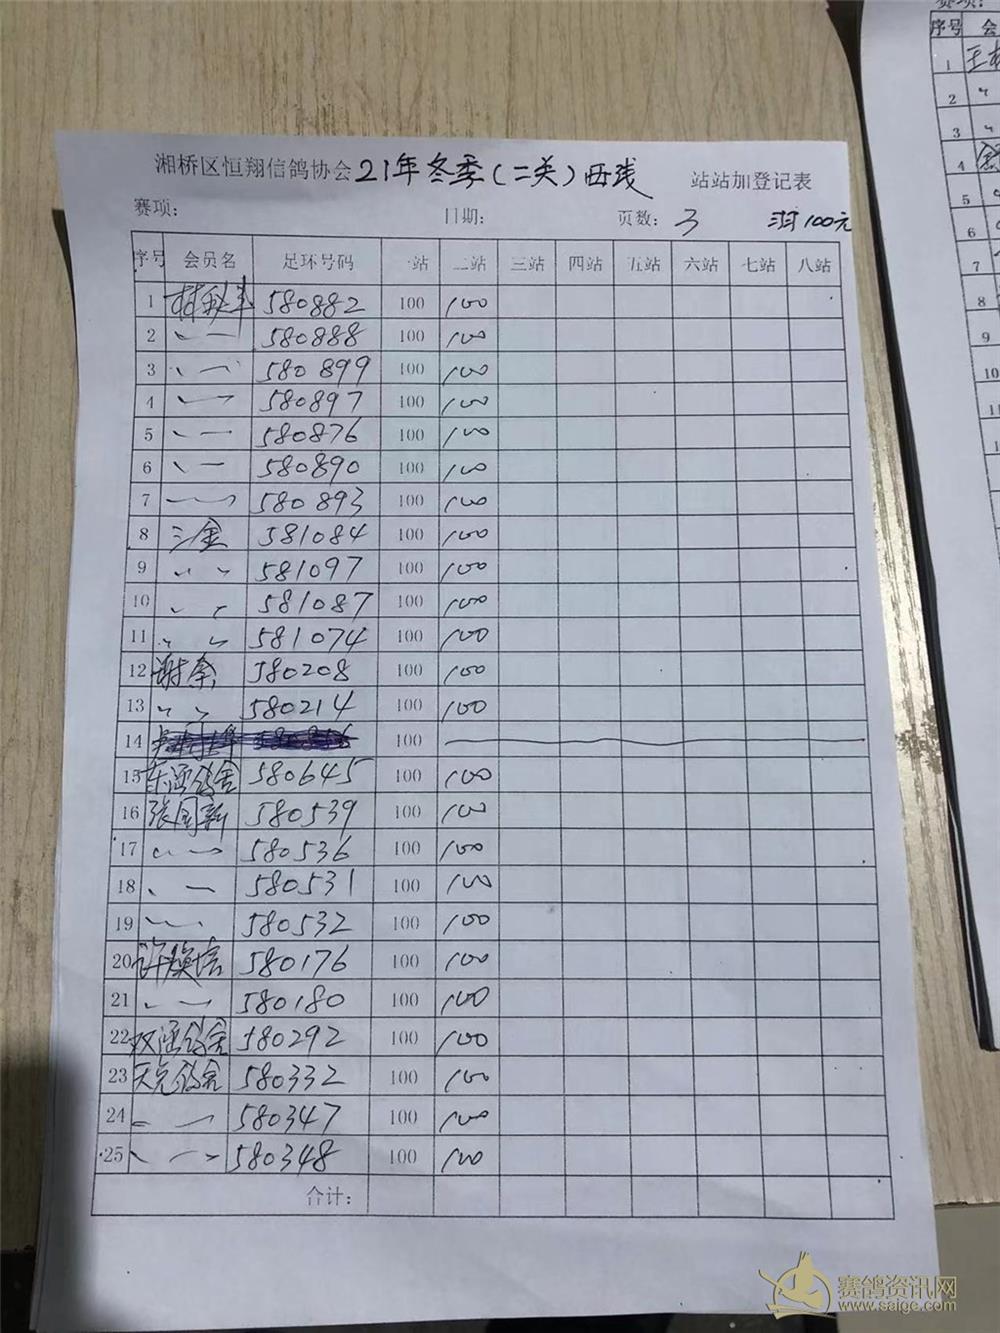 湘桥区恒翔信鸽协会21年冬季(二关)西线 站站加登记表
赛项: 日期: 页数: 3 100元
序号 会员名 足环号码 一站 二站 三站 四站 五站 六站 七站 八站
1 林 580882 100 100
2 〃 580888 100 100
3 〃 580899 100 100
4 〃 580897 100 100
5 〃 580876 100 100
6 〃 580890 100 100
7 〃 580893 100 100
8 三金 581084 100 100
9 〃 581097 100 100
10 〃 581087 100 100
11 〃 581074 100 100
12 谢 580208 100 100
13 〃 580214 100 100
14 100
15 鸽舍 580645 100 100
16 张国新 580539 100 100
17 〃 580536 100 100
18 〃 580531 100 100
19 〃 580532 100 100
20 许焕 580176 100 100
21 〃 580180 100 100
22 双涵鸽舍 580292 100 100
23 天 鸽舍 580332 100 100
24 〃 580347 100 100
25 〃 580348 100 100
合计:
赛项:
序号 会
1 王
2 〃
3 〃
4
5
6
7
8
9
10
11
1
赛鸽资讯网
www.saige.com